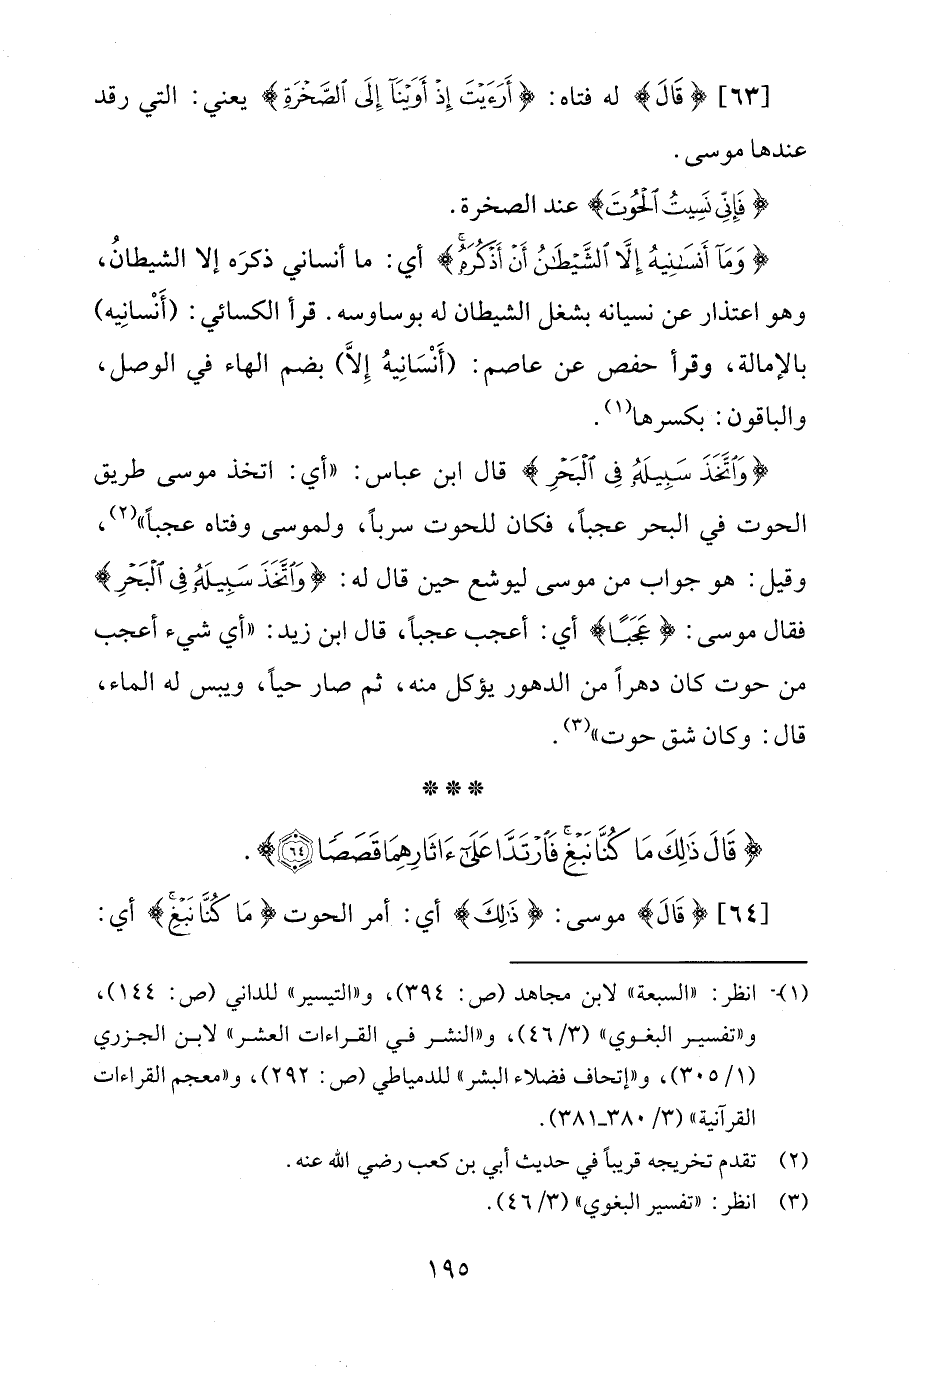 [٦٣] ﴿قَالَ﴾ له فتاه: ﴿أَرَءَيْتَ إِذْ أَوَيْنَآ إِلَى ٱلصَّخْرَةِ﴾ يعني: التي رقد
عندها موسى.
﴿فَإِنِّى نَسِيتُ ٱلْحُوتَ﴾ عند الصخرة.
﴿وَمَآ أَنسَىٰنِيهُ إِلَّا ٱلشَّيْطَٰنُ أَنْ أَذْكُرَهُۥۚ﴾ أي: ما أنساني ذكرَه إلا الشيطانُ،
وهو اعتذار عن نسيانه بشغل الشيطان له بوساوسه. قرأ الكسائي: (أَنْسانِيه)
بالإمالة، وقرأ حفص عن عاصم: (أَنْسَانِيهُ إِلاَّ) بضم الهاء في الوصل،
والباقون: بكسرها(١).
﴿وَٱتَّخَذَ سَبِيلَهُۥ فِى ٱلْبَحْرِ﴾ قال ابن عباس: «أي: اتخذ موسى طريق
الحوت في البحر عجباً، فكان للحوت سرباً، ولموسى وفتاه عجباً»(٢)،
وقيل: هو جواب من موسى ليوشع حين قال له: ﴿وَٱتَّخَذَ سَبِيلَهُۥ فِى ٱلْبَحْرِ﴾
فقال موسى: ﴿عَجَبًا﴾ أي: أعجب عجباً، قال ابن زيد: «أي شيء أعجب
من حوت كان دهراً من الدهور يؤكل منه، ثم صار حياً، ويبس له الماء،
قال: وكان شق حوت»(٣).
* * *
﴿قَالَ ذَٰلِكَ مَا كُنَّا نَبْغِۚ فَٱرْتَدَّا عَلَىٰٓ ءَاثَارِهِمَا قَصَصًا ٦٤﴾.
[٦٤] ﴿قَالَ﴾ موسى: ﴿ذَٰلِكَ﴾ أي: أمر الحوت ﴿مَا كُنَّا نَبْغِۚ﴾ أي:
(١) انظر: «السبعة» لابن مجاهد (ص: ٣٩٤)، و«التيسير» للداني (ص: ١٤٤)،
و«تفسير البغوي» (٣/ ٤٦)، و«النشر في القراءات العشر» لابن الجزري
(١/ ٣٠٥)، و«إتحاف فضلاء البشر» للدمياطي (ص: ٢٩٢)، و«معجم القراءات
القرآنية» (٣/ ٣٨٠ـ٣٨١).
(٢) تقدم تخريجه قريباً في حديث أبي بن كعب رضي الله عنه.
(٣) انظر: «تفسير البغوي» (٣/ ٤٦).
١٩٥